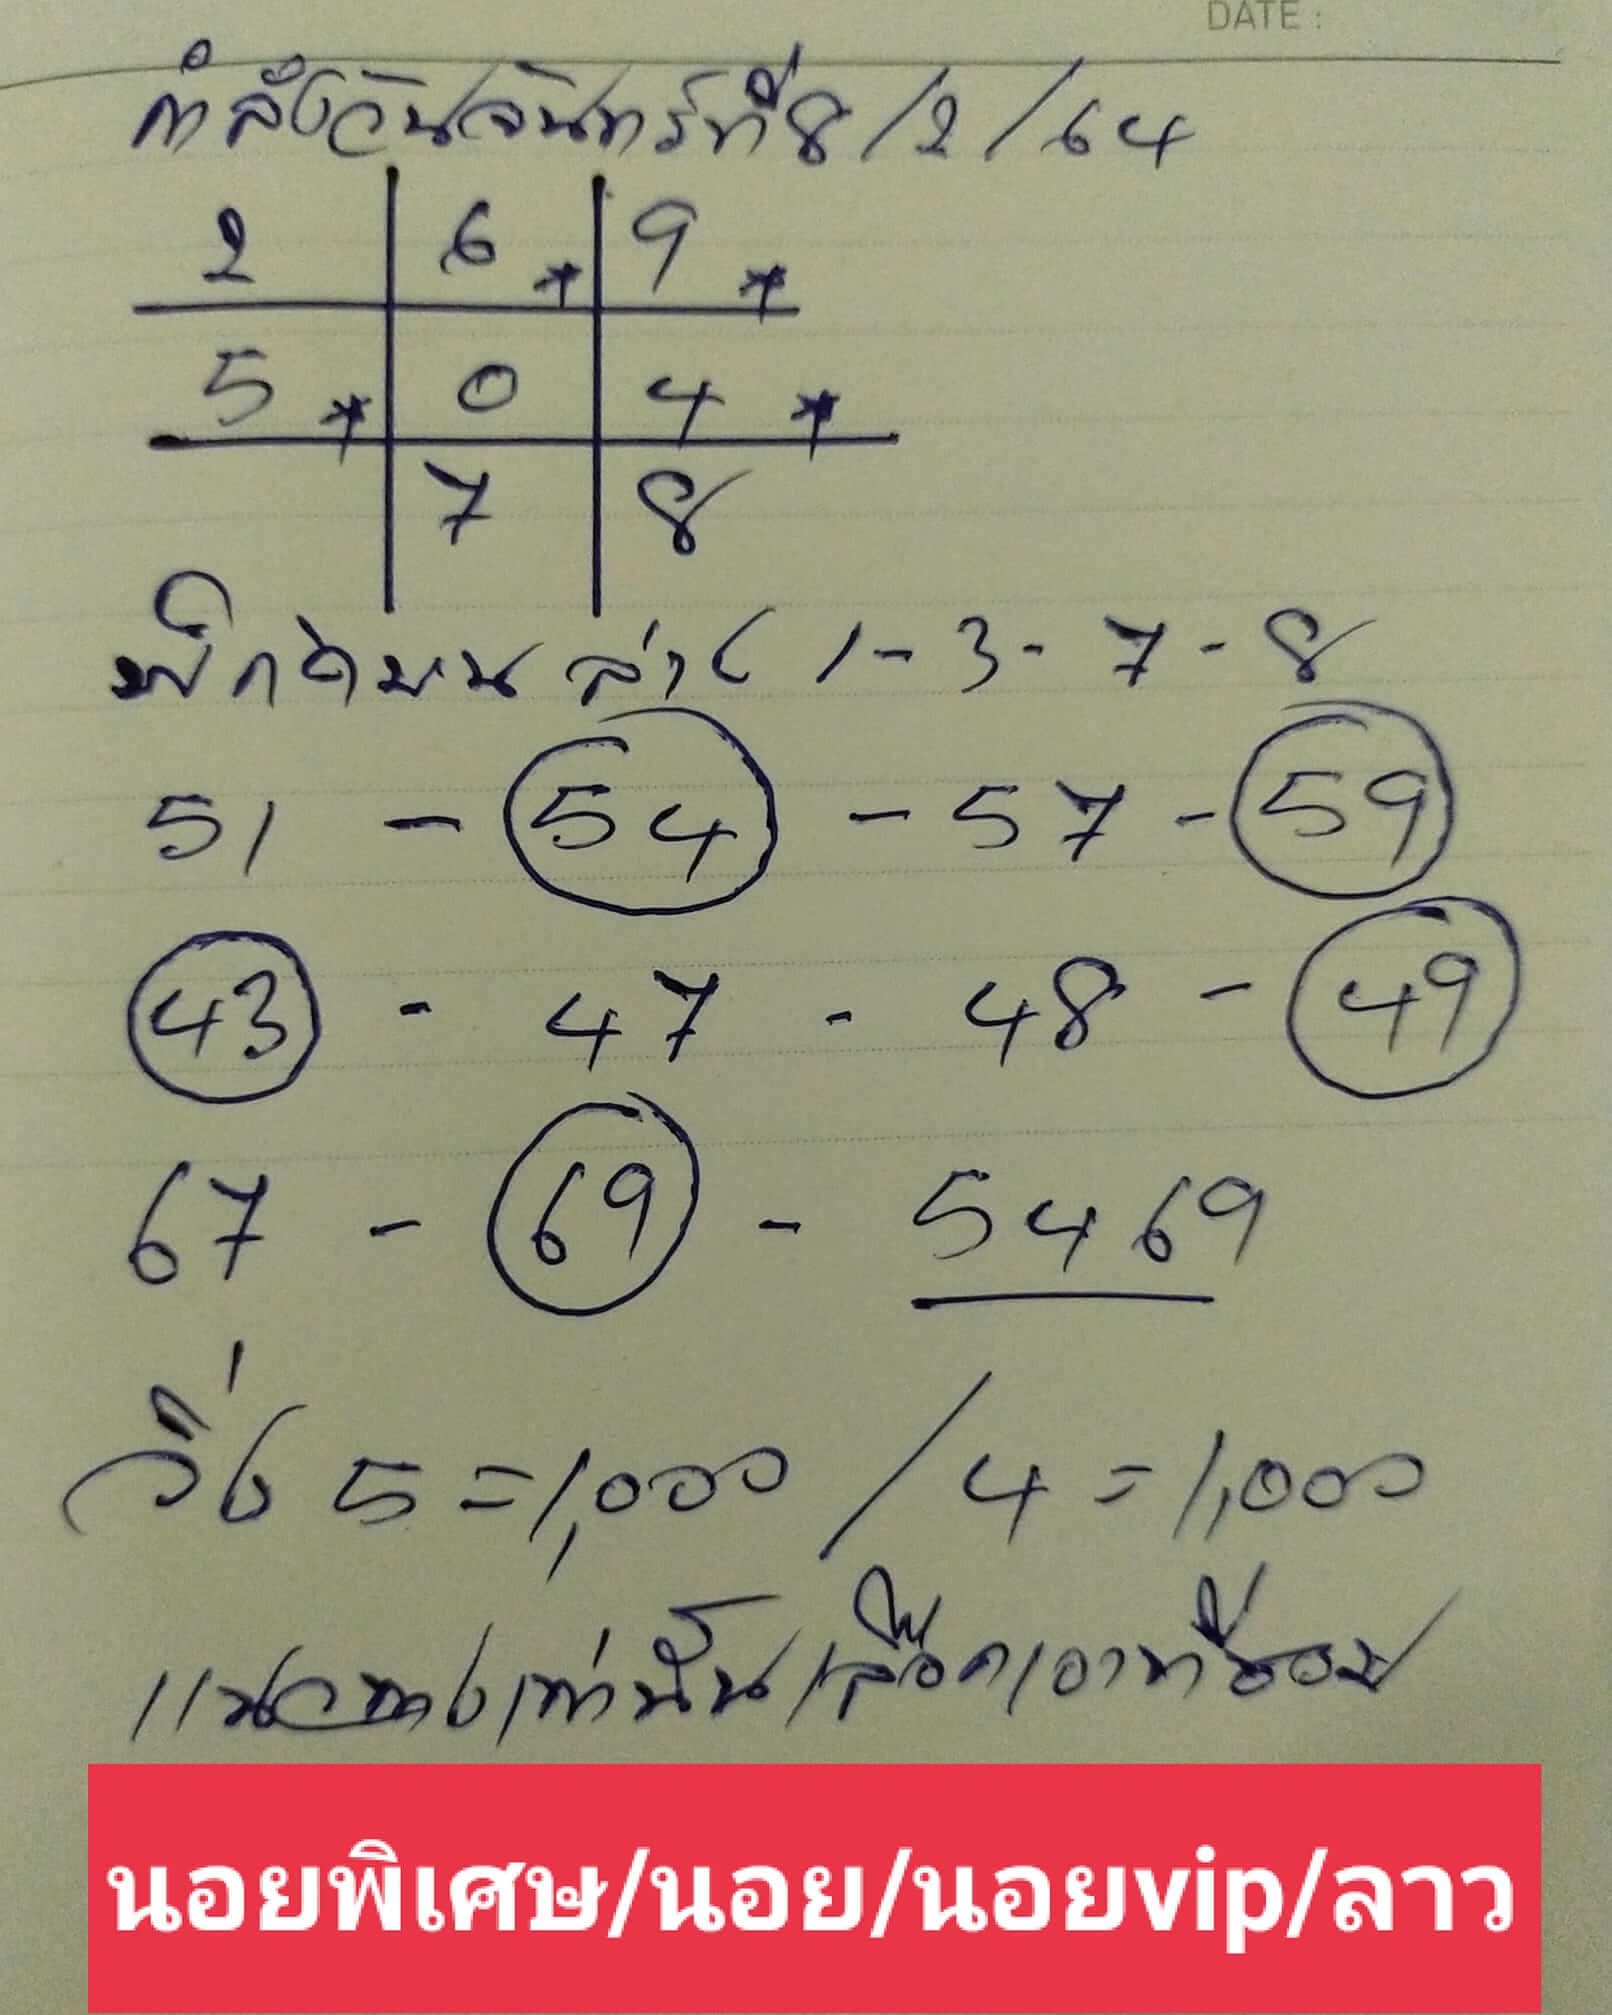 DATE :
กำลังวันจันทร์ที่ 8/2/64
2 6 * 9 *
5 * 0 4 *
7 8
บน ล่าง 1-3-7-8
51 - 54 - 57 - 59
43 - 47 - 48 - 49
67 - 69 - 5469
วิ่ง 5 = 1,000 / 4 = 1,000
แนวทางเท่านั้นเลือกเอาที่ชอบ
นอยพิเศษ/นอย/นอยvip/ลาว